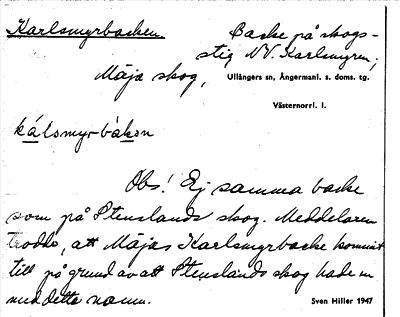 Karlsmyrbacken
Backe på skogs-
stig NV. Karlsmyren,
Mäja skog,
Ullångers sn, Ångermanl. s. doms. tg.
Västernorrl. l.
kálsmyrbákɘn
Obs! Ej samma backe
som på Stenslands skog. Meddelaren
trodde, att Mäjas Karlsmyrbacke kommit
till på grund av att Stenslands skog hade en
med detta namn.
Sven Hiller 1947